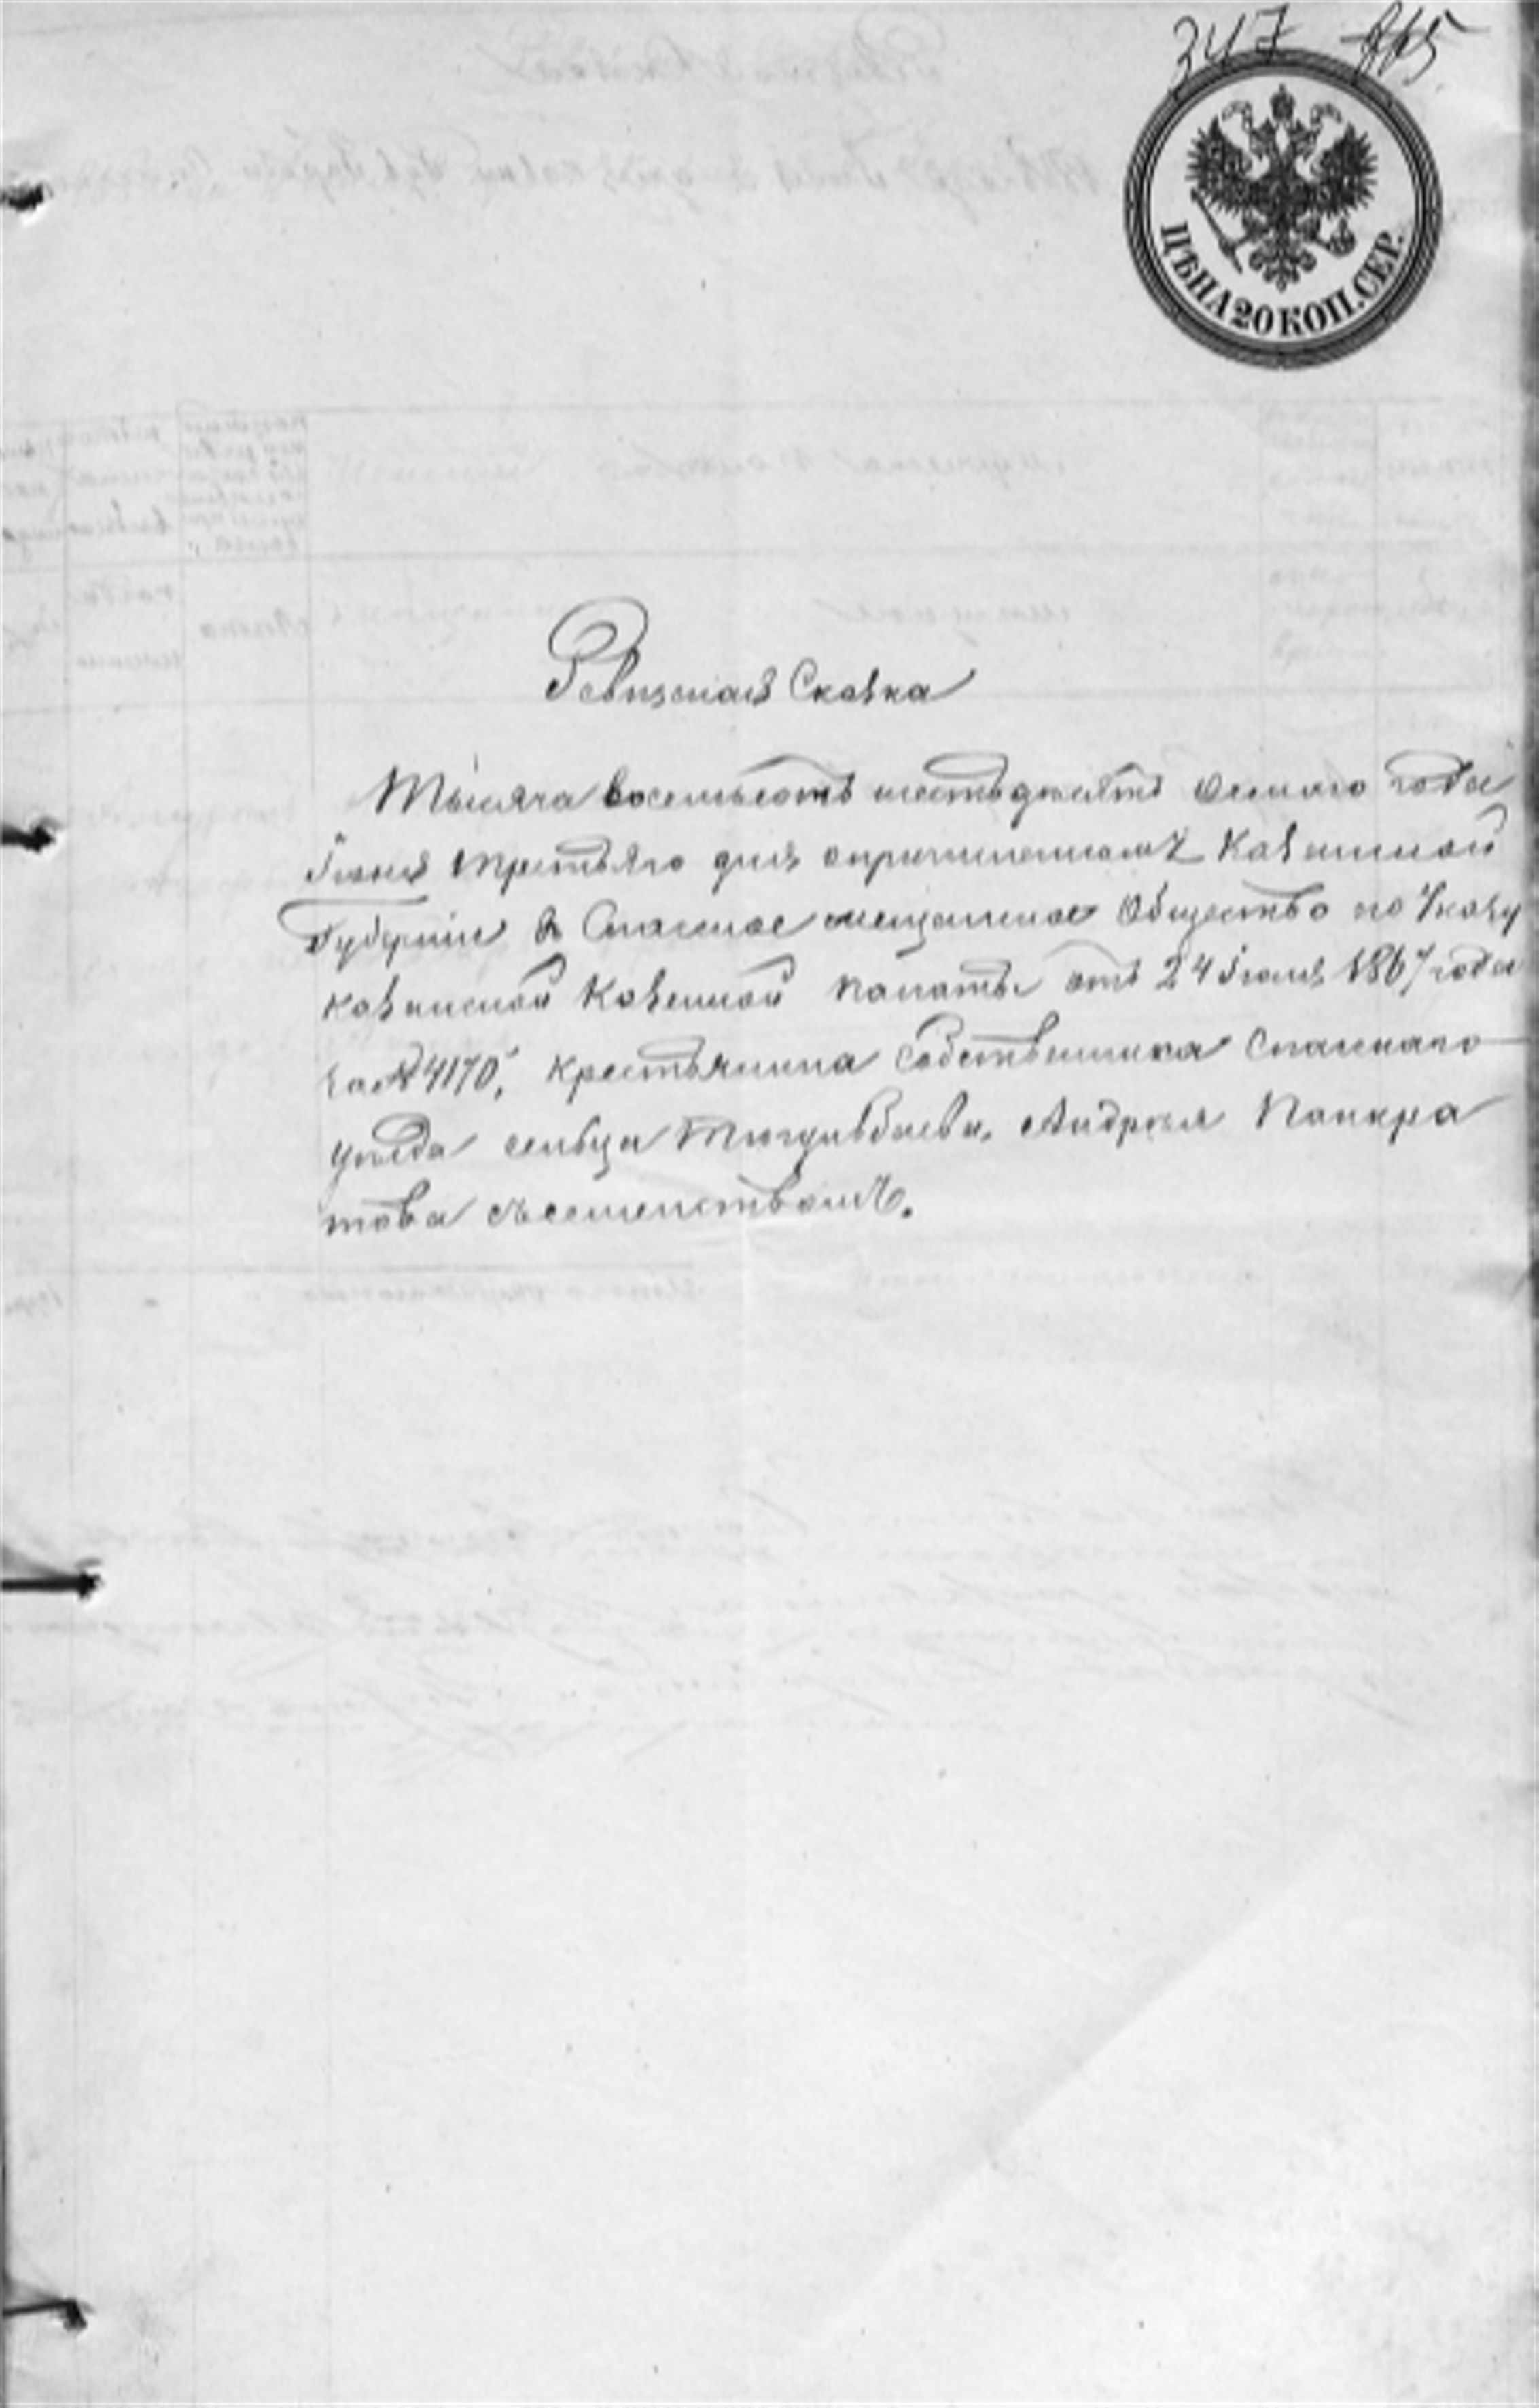 347
ЦѢНА 20 КОП. СЕР.
Ревизская Сказка
Тысяча восемьсотъ шестьдесятъ осмаго года
Iюня третьяго дня опричисленномъ Казанской
Губернiи въ Спаское мещанское Общество по Указу
казанской Казенной палаты отъ 24 Iюля 1867 года
за № 4170, крестьянина Собственника Спаскаго
уѣзда сельца Андрея Панкра
това съсемействомъ.